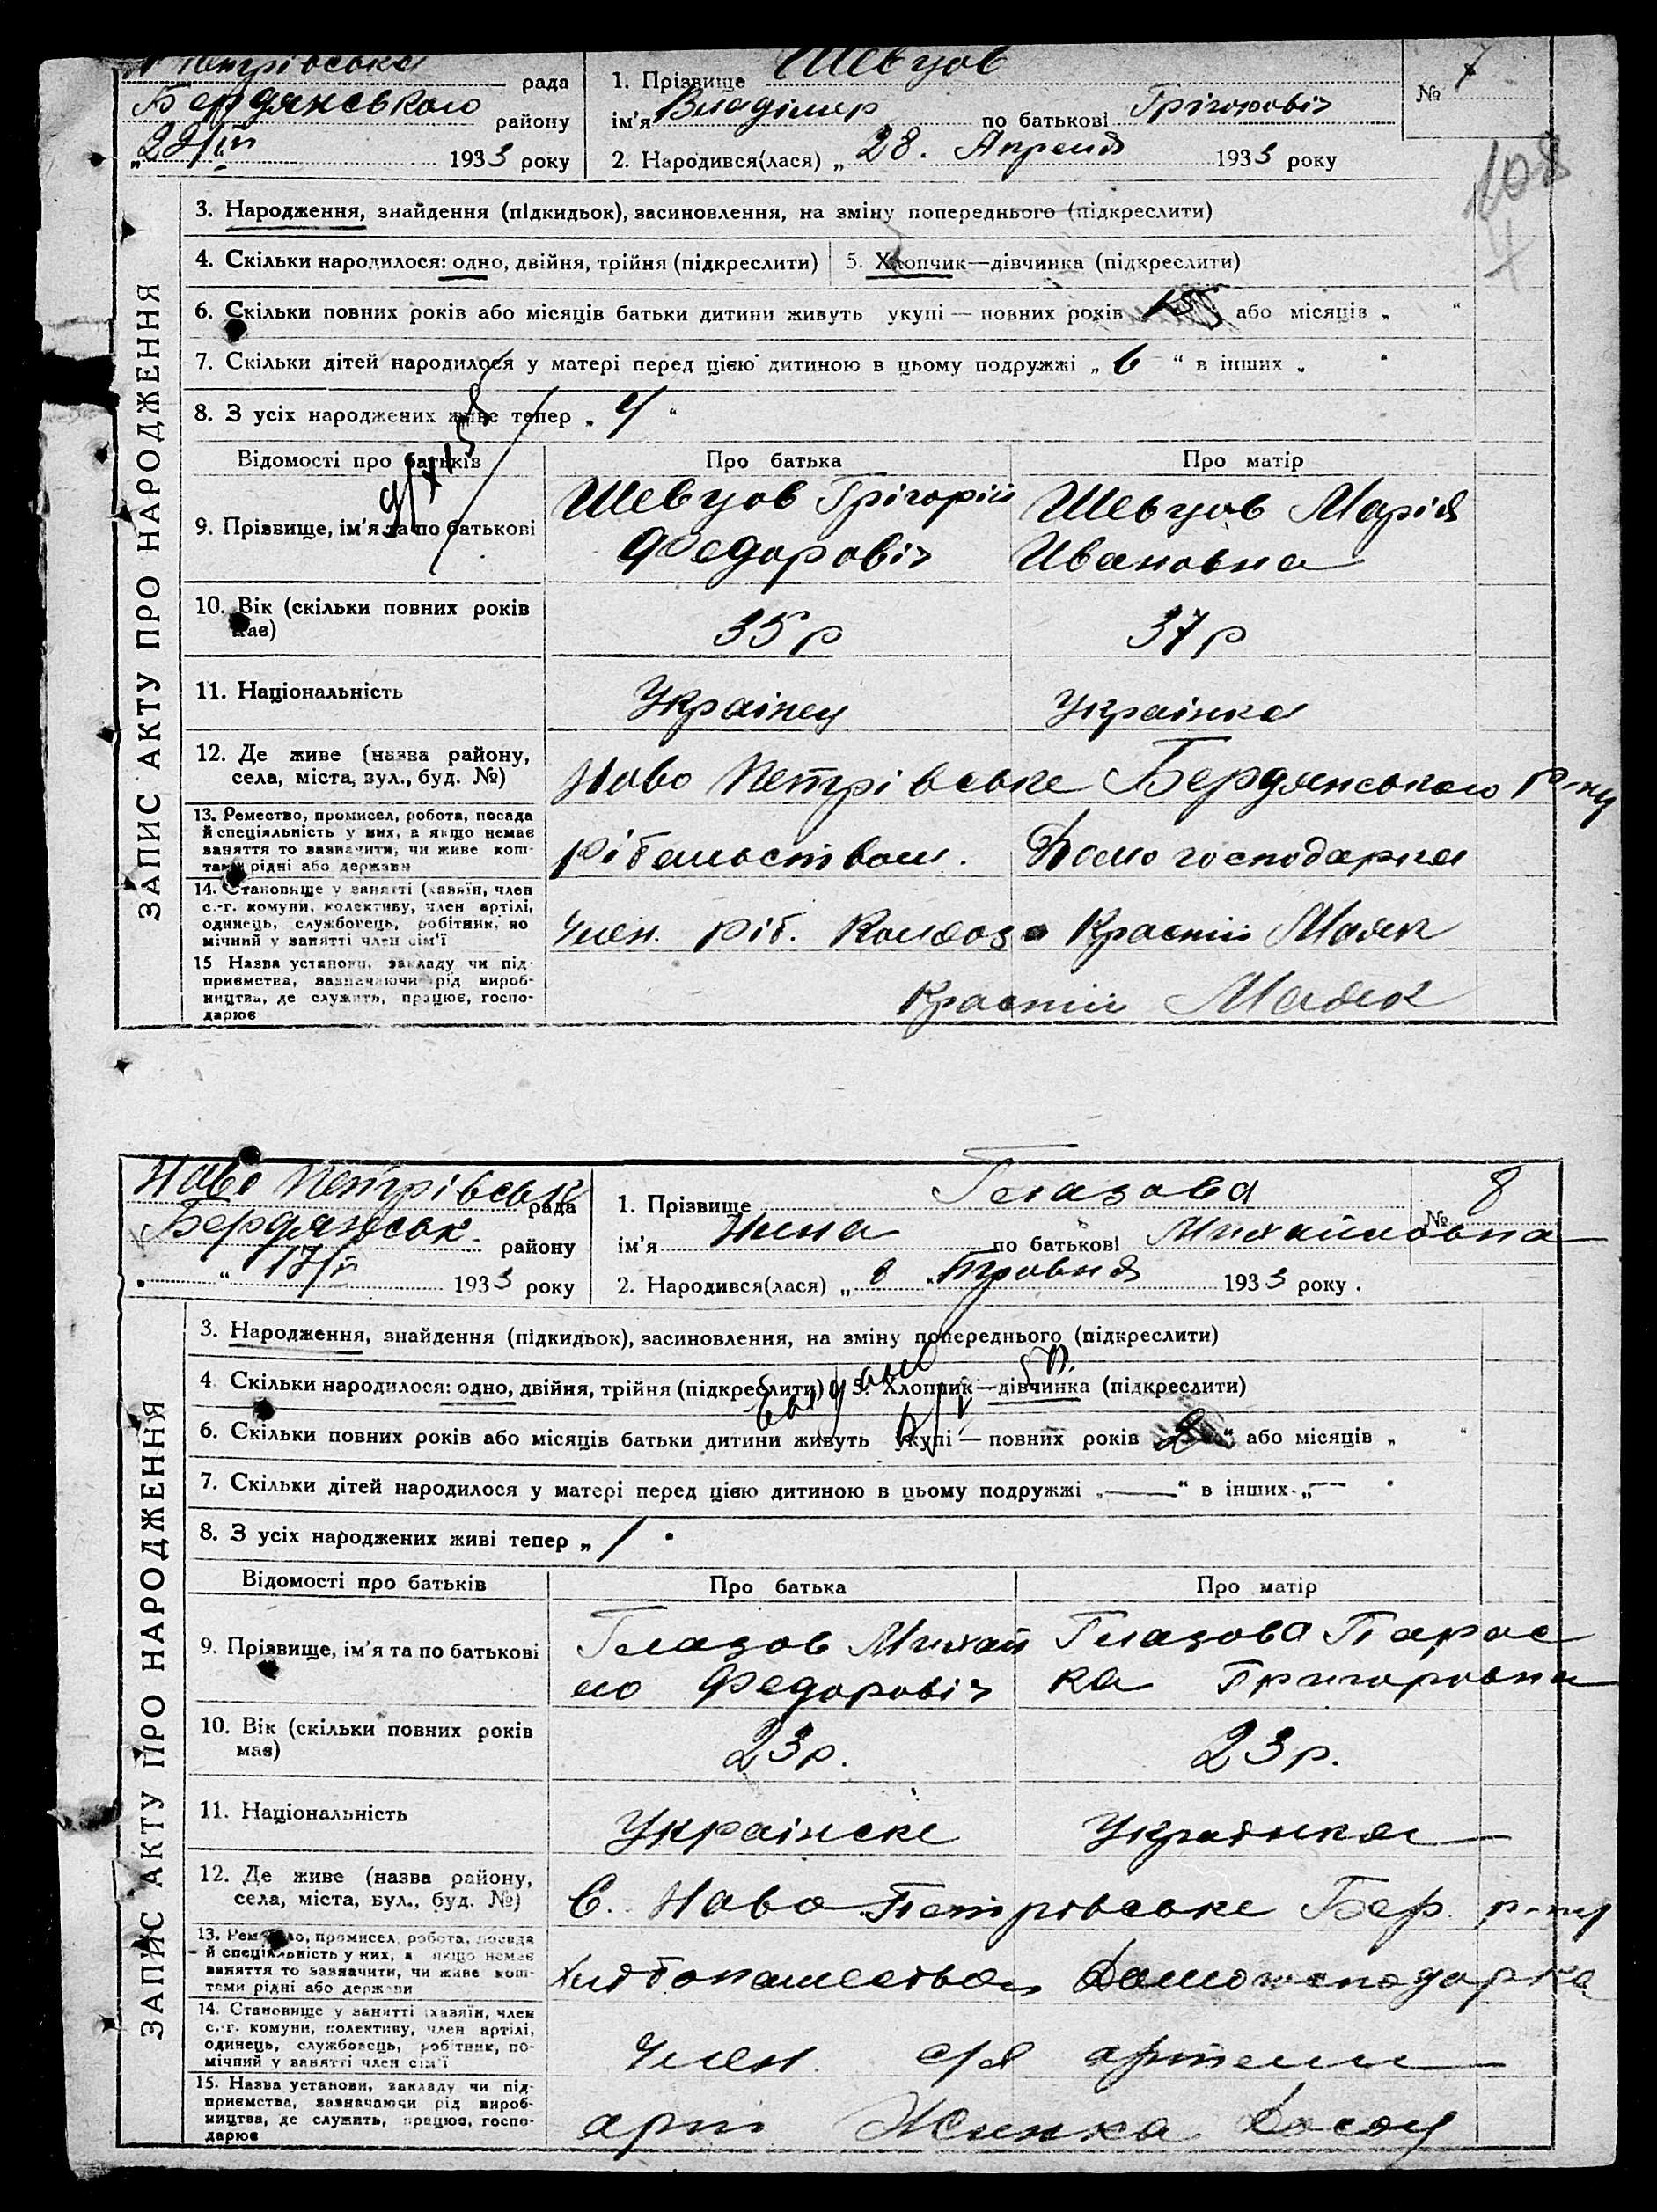 Петрівська рада
Бердянського району
„22/IV 1933 року
1. Прізвище Шевцов
ім'я Владімер по батькові Грігоровіч
2. Народився(лася) „ 28. Апреля 1933 року
№ 7
108
ЗАПИС АКТУ ПРО НАРОДЖЕННЯ
3. Народження, знайдення (підкидьок), засиновлення, на зміну попереднього (підкреслити)
4. Скільки народилося: одно, двійня, трійня (підкреслити)
5. Хлопчик—дівчинка (підкреслити)
6. Скільки повних років або місяців батьки дитини живуть укупі — повних років або місяців „ “
7. Скільки дітей народилося у матері перед цією дитиною в цьому подружжі „ 6 “ в інших „ “
8. З усіх народжених живе тепер „ 4 “
Відомості про батьків Про батька Про матір
9. Прізвище, ім'я та по батькові
Шевцов Грігорій
Федоровіч
Шевцов Марія
Ивановна
10. Вік (скільки повних років
має)
35 р
37 р
11. Національність
Українец
Українка
12. Де живе (назва району,
села, міста, вул., буд. №)
Ново Петрівське Бердянського р-ну
13. Ремество, промисел, робота, посада
й спеціяльність у них, а якщо немає
заняття то зазначити, чи живе кош-
тами рідні або держави
рібальством. Домогосподарка
14. Становище у занятті (хазяїн, член
с.-г. комуни, колективу, член артілі,
одинець, службовець, робітник, по
мічний у занятті член сім'ї
Член. ріб. Колхоза Красний Маяк
15 Назва установи, закладу чи під-
приємства, зазначаючи рід вироб-
ництва, де служить, працює, госпо-
дарює
Красний Маяк
Ново Петрівськ рада
Бердянськ. району
„ “ 17/IV 1933 року
1. Прізвище Глазова
ім'я Нина по батькові Михайловна
2. Народився(лася) „ 8 “ 1933 року.
№ 8
ЗАПИС АКТУ ПРО НАРОДЖЕННЯ
3. Народження, знайдення (підкидьок), засиновлення, на зміну попереднього (підкреслити)
4. Скільки народилося: одно, двійня, трійня (підкреслити)
5. Хлопчик—дівчинка (підкреслити)
6. Скільки повних років або місяців батьки дитини живуть укупі — повних років “ або місяців „ “
7. Скільки дітей народилося у матері перед цією дитиною в цьому подружжі „—“ в інших „—
8. З усіх народжених живі тепер „ 1
Відомості про батьків Про батька Про матір
9. Прізвище, ім'я та по батькові
Глазов Михай
ло Федоровіч
Глазова Парас
ка Григоровна
10. Вік (скільки повних років
має)
23 р.
23 р.
11. Національність
Українскі
Українка
12. Де живе (назва району,
села, міста, вул., буд. №)
С. Ново Петрівське Бер. р-ну
13. Ремество, промисел, робота, посада
й спеціяльність у них, а якщо немає
заняття то зазначити, чи живе кош-
тами рідні або держави
Домогосподарка
14. Становище у занятті (хазяїн, член
с.-г. комуни, колективу, член артілі,
одинець, службовець, робітник, по-
мічний у занятті член сім'ї
Член. с/г артели
15. Назва установи, закладу чи під-
приємства, зазначаючи рід вироб-
ництва, де служить, працює, госпо-
дарює
арт